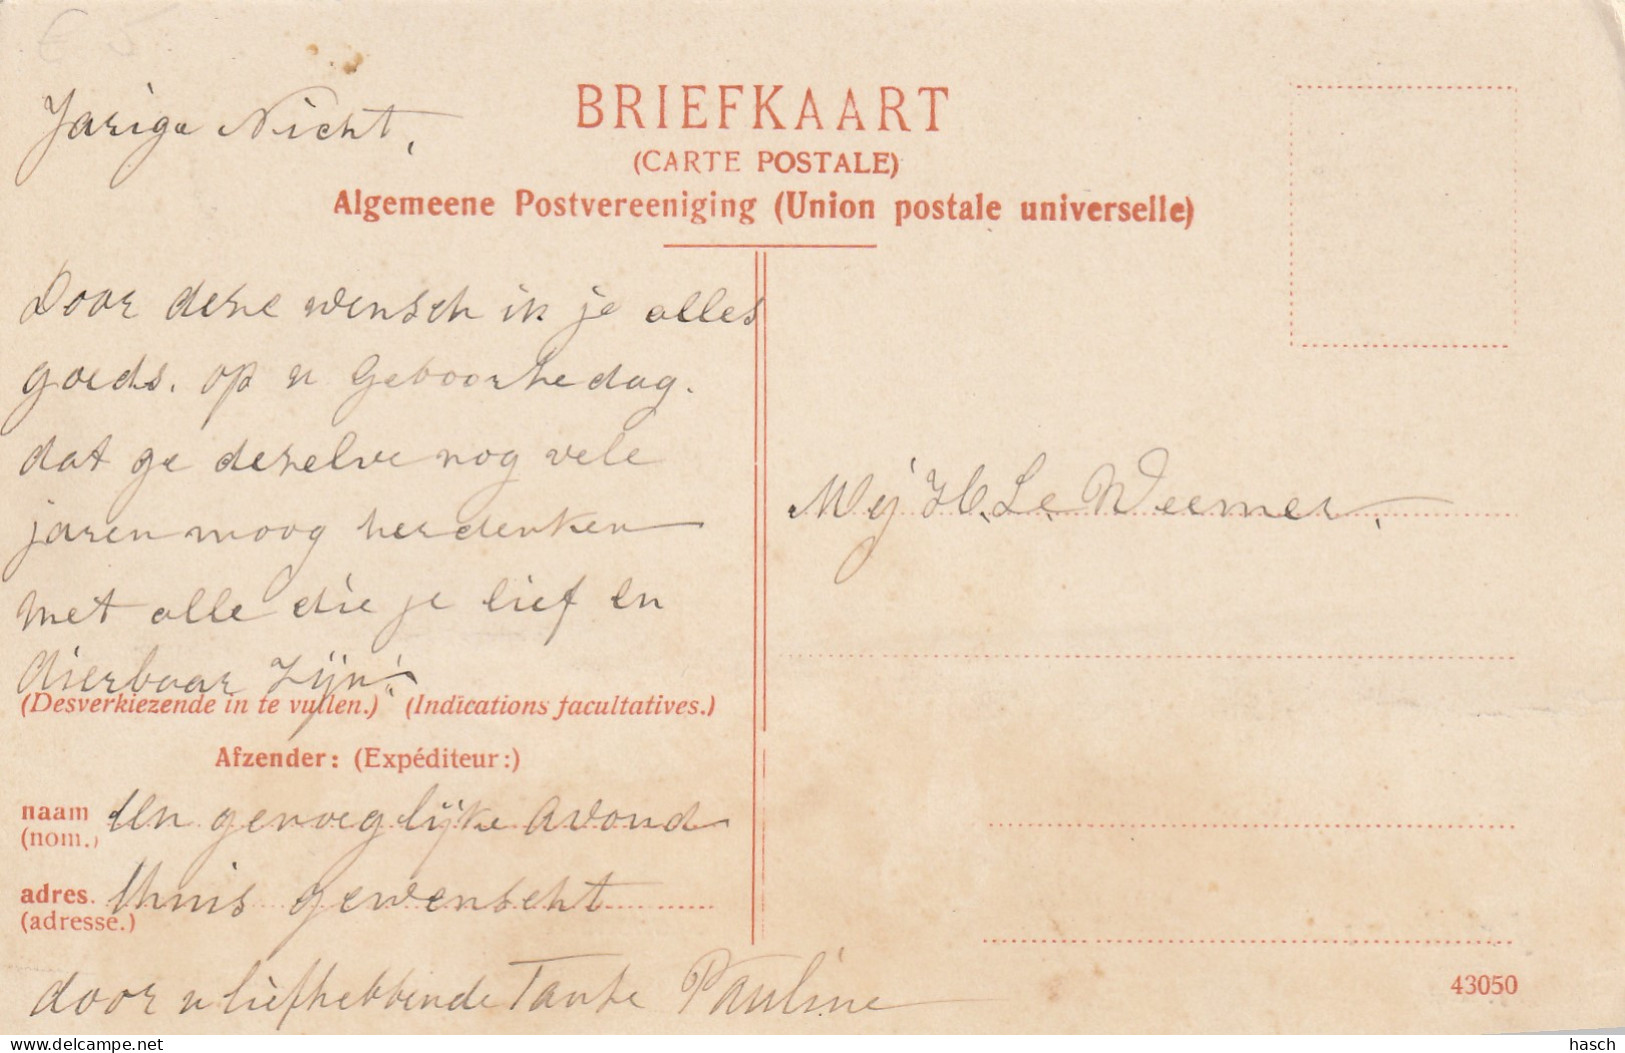 Jarige Nicht,
BRIEFKAART
(CARTE POSTALE)
Algemeene Postvereeniging (Union postale universelle)
Door deze wensch ik je alles
goeds. op u Geboortedag.
dat ge dezelve nog vele
jaren moog herdenken
met alle die je lief en
dierbaar zijn!
(Desverkiezende in te vullen.) (Indications facultatives.)
Afzender: (Expéditeur:)
naam
(nom.)
Een genoeglijke avond
adres.
(adresse.)
thuis gewenscht
door u liefhebbende Tante Pauline
Mej H. Le Weemer.
43050
delcampe.net
hasch